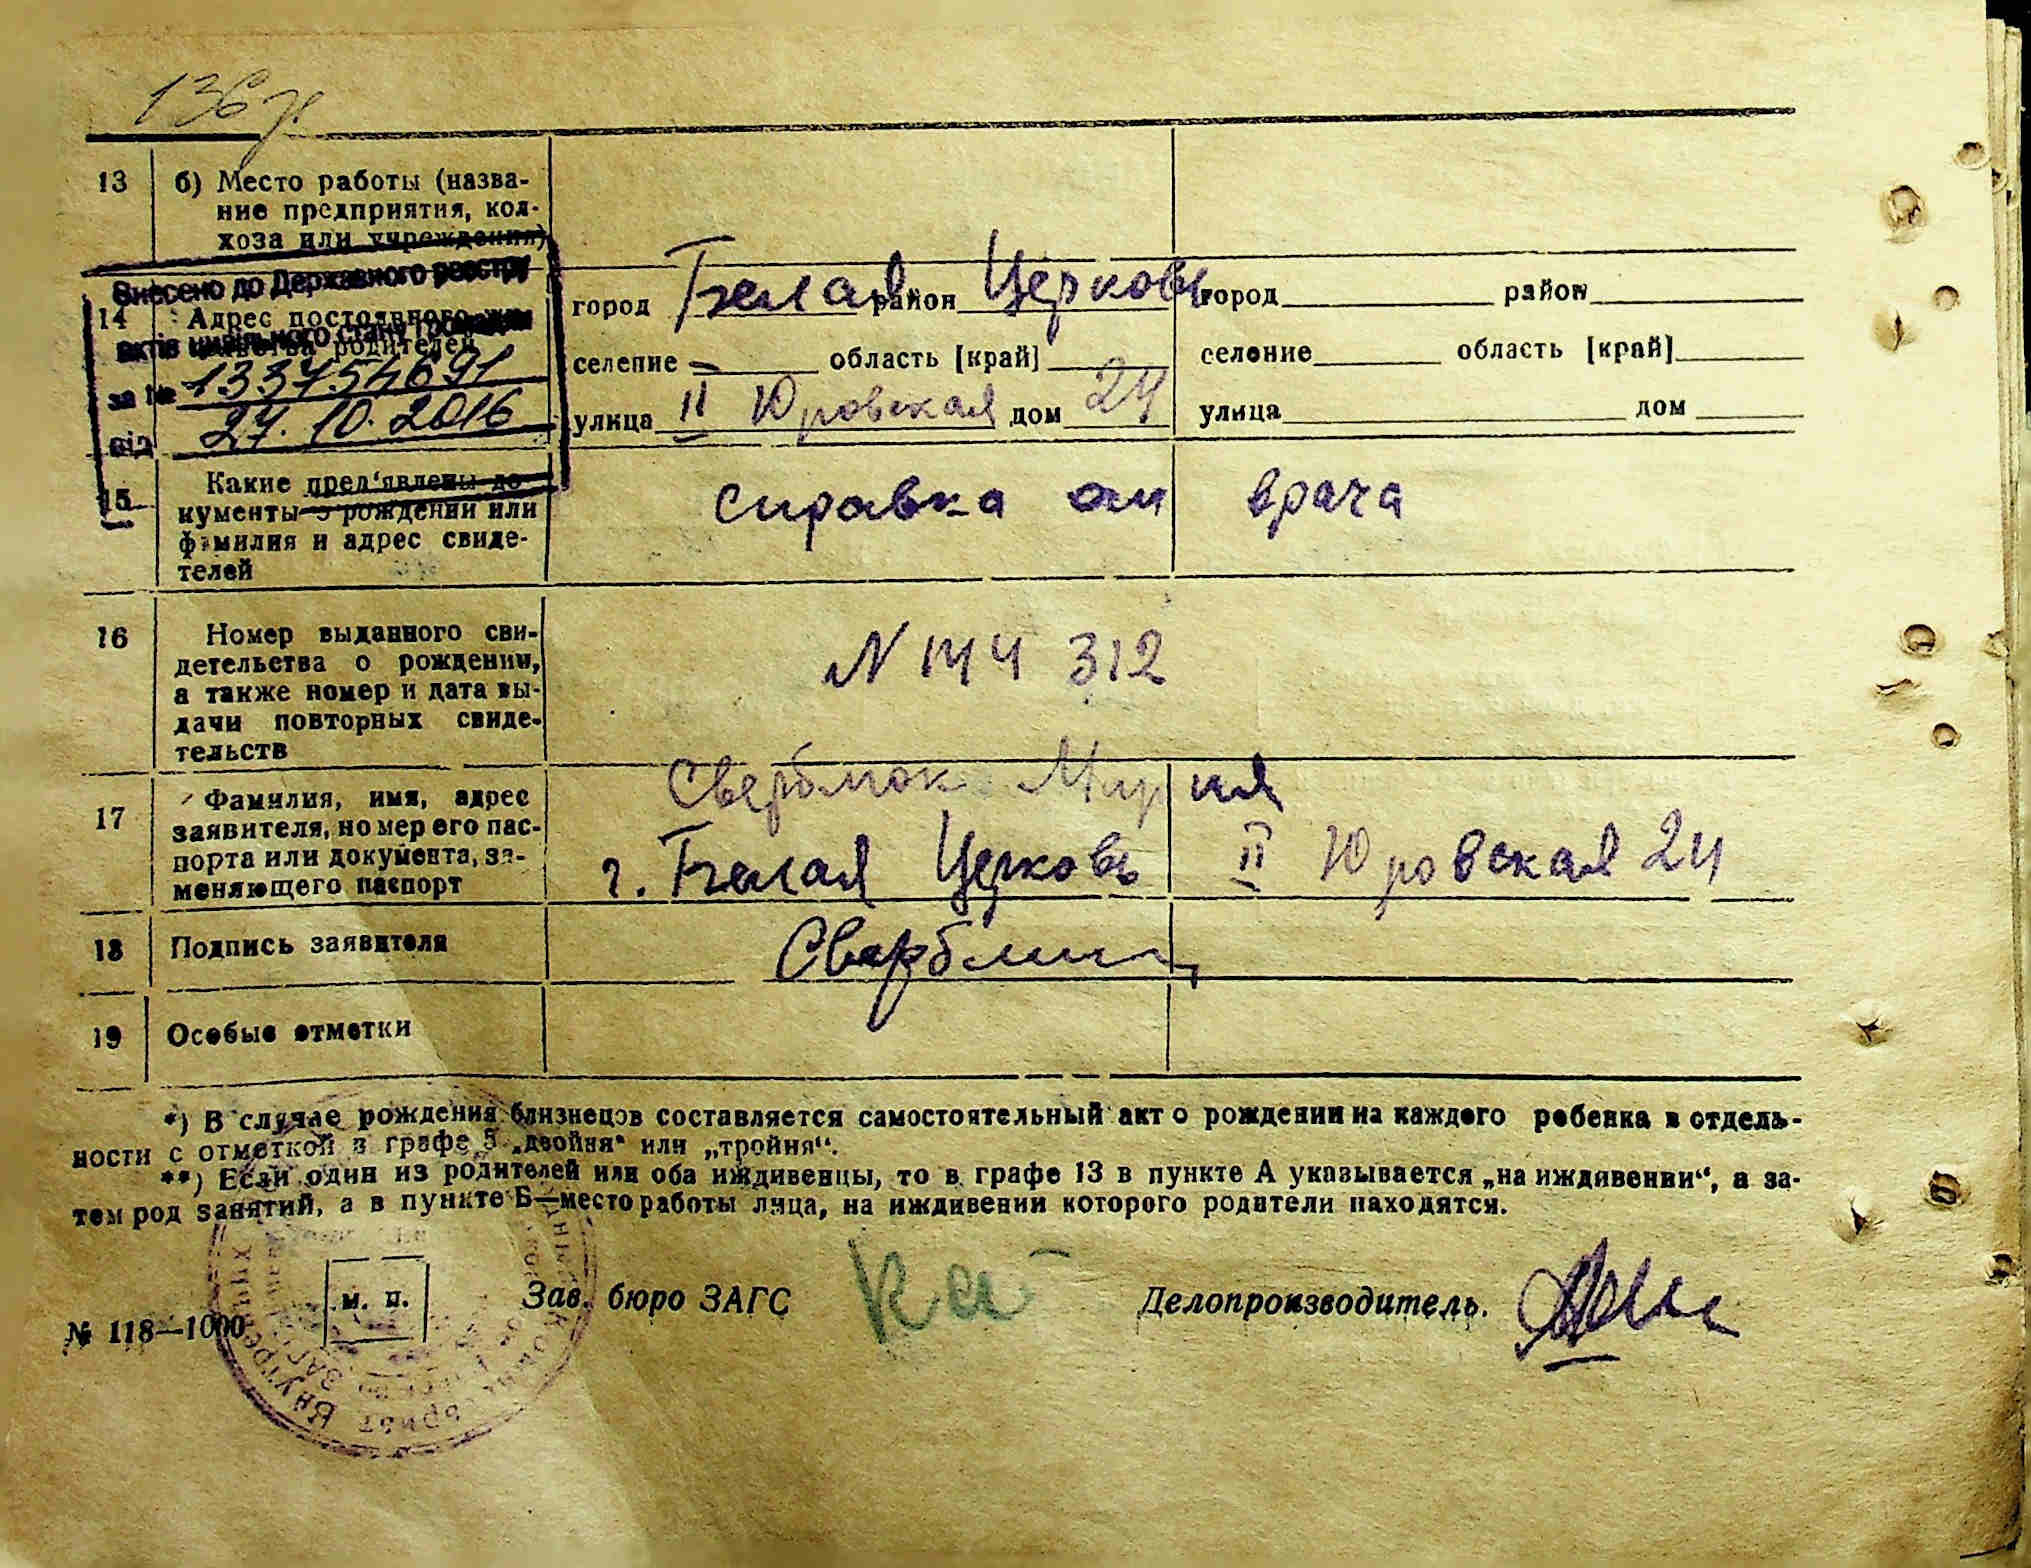 13 б) Место работы (назва-
ние предприятия, кол-
хоза или учреждения)
Внесено до Державного реєстру
актів цивільного стану громадян
за № 1337547691
від 27.10.2016
14 Адрес постоянного жи-
тельства родителей
город Белая район Церковь город район
селение область [край] селение область [край]
улица II Юровская дом 24 улица дом
15 Какие пред‘явлены до-
кументы о рождении или
фамилия и адрес свиде-
телей
справка от врача
16 Номер выданного сви-
детельства о рождении,
а также номер и дата вы-
дачи повторных свиде-
тельств
N 144 312
17 Фамилия, имя, адрес
заявителя, номер его пас-
порта или документа, за-
меняющего паспорт
Мария
г. Белая Церковь II Юровская 24
18 Подпись заявителя
19 Особые отметки
*) В случае рождения близнецов составляется самостоятельный акт о рождении на каждого ребенка в отдель-
ности с отметкой в графе 5 „двойня“ или „тройня“.
**) Если один из родителей или оба иждивенцы, то в графе 13 в пункте А указывается „на иждивении“, а за-
тем род занятий, а в пункте Б—место работы лица, на иждивении которого родители находятся.
м. п. Зав. бюро ЗАГС Делопроизводитель.
№ 118—1000